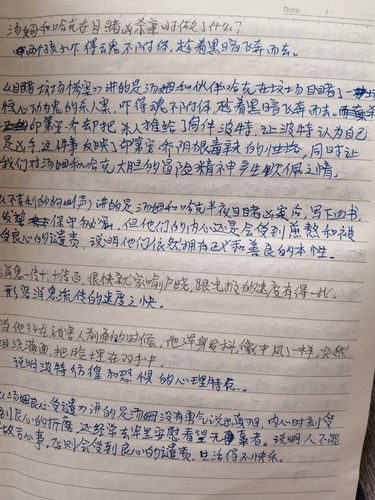 汤姆和哈克在目睹凶杀案时做了什么?
两个孩子吓得魂不附体,趁着黑暗飞奔而去。
目睹坟场惨案》讲的是汤姆和伙伴哈克在坟场目睹了一
惊心动魄的杀人案,吓得魂不附体,趁着黑暗飞奔而去。
印第安·乔却把杀人推给了同伴波特,让波特认为自己
是凶手,这件事反映了印第安·乔阴狠毒辣的性格,同时让
我们对汤姆和哈克大胆的冒险精神产生钦佩之情。
不吉利的狗叫声》讲的是汤姆和哈克半夜目睹凶案后,写下血书,
发誓保守秘密,但他们的内心还是会受到煎熬和被
受良心的谴责,说明他们依然拥有正义和善良的本性。
消息一传十十传百,很快就家喻户晓,跟电报的速度有得一比。
形容消息流传的速度之快。
当他站在被害人前面的时候,他浑身发抖,像中风一样,突然
泪流满面,把脸埋在双手中。
说明波特彷徨和恐惧的心理特点。
汤姆良心受谴》讲的是汤姆没有勇气说出真相,内心时刻受
到良心的折磨,还经常去牢里安慰看望无辜者。说明人不能
做亏心事,否则会受到良心的谴责,生活得不快乐。